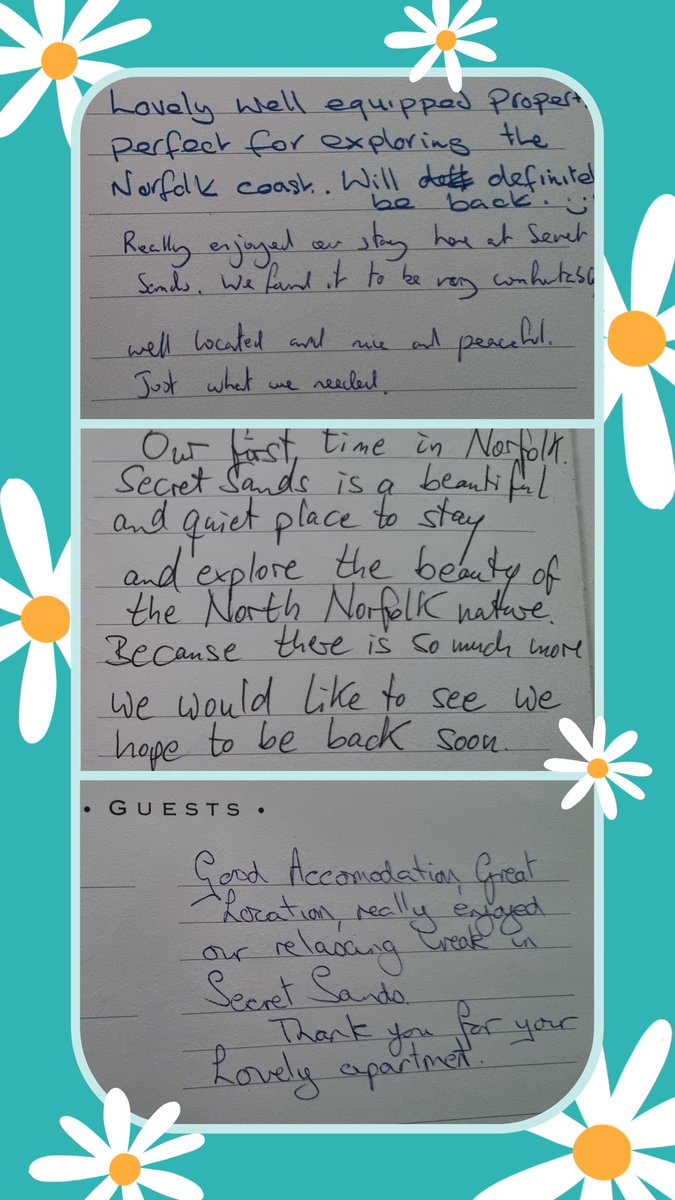 Lovely well equipped propert
perfect for exploring the
Norfolk coast.. Will definitel
be back. :)
Really enjoyed our stay here at Secret
Sands. We found it to be very comfortabl
well located and nice and peaceful.
Just what we needed.
Our first time in Norfolk.
Secret Sands is a beautiful
and quiet place to stay
and explore the beauty of
the North Norfolk nature.
Because there is so much more
we would like to see we
hope to be back soon.
• GUESTS •
Good Accomodation, Great
Location, really enjoyed
our relaxing break in
Secret Sands.
Thank you for your
Lovely apartment.